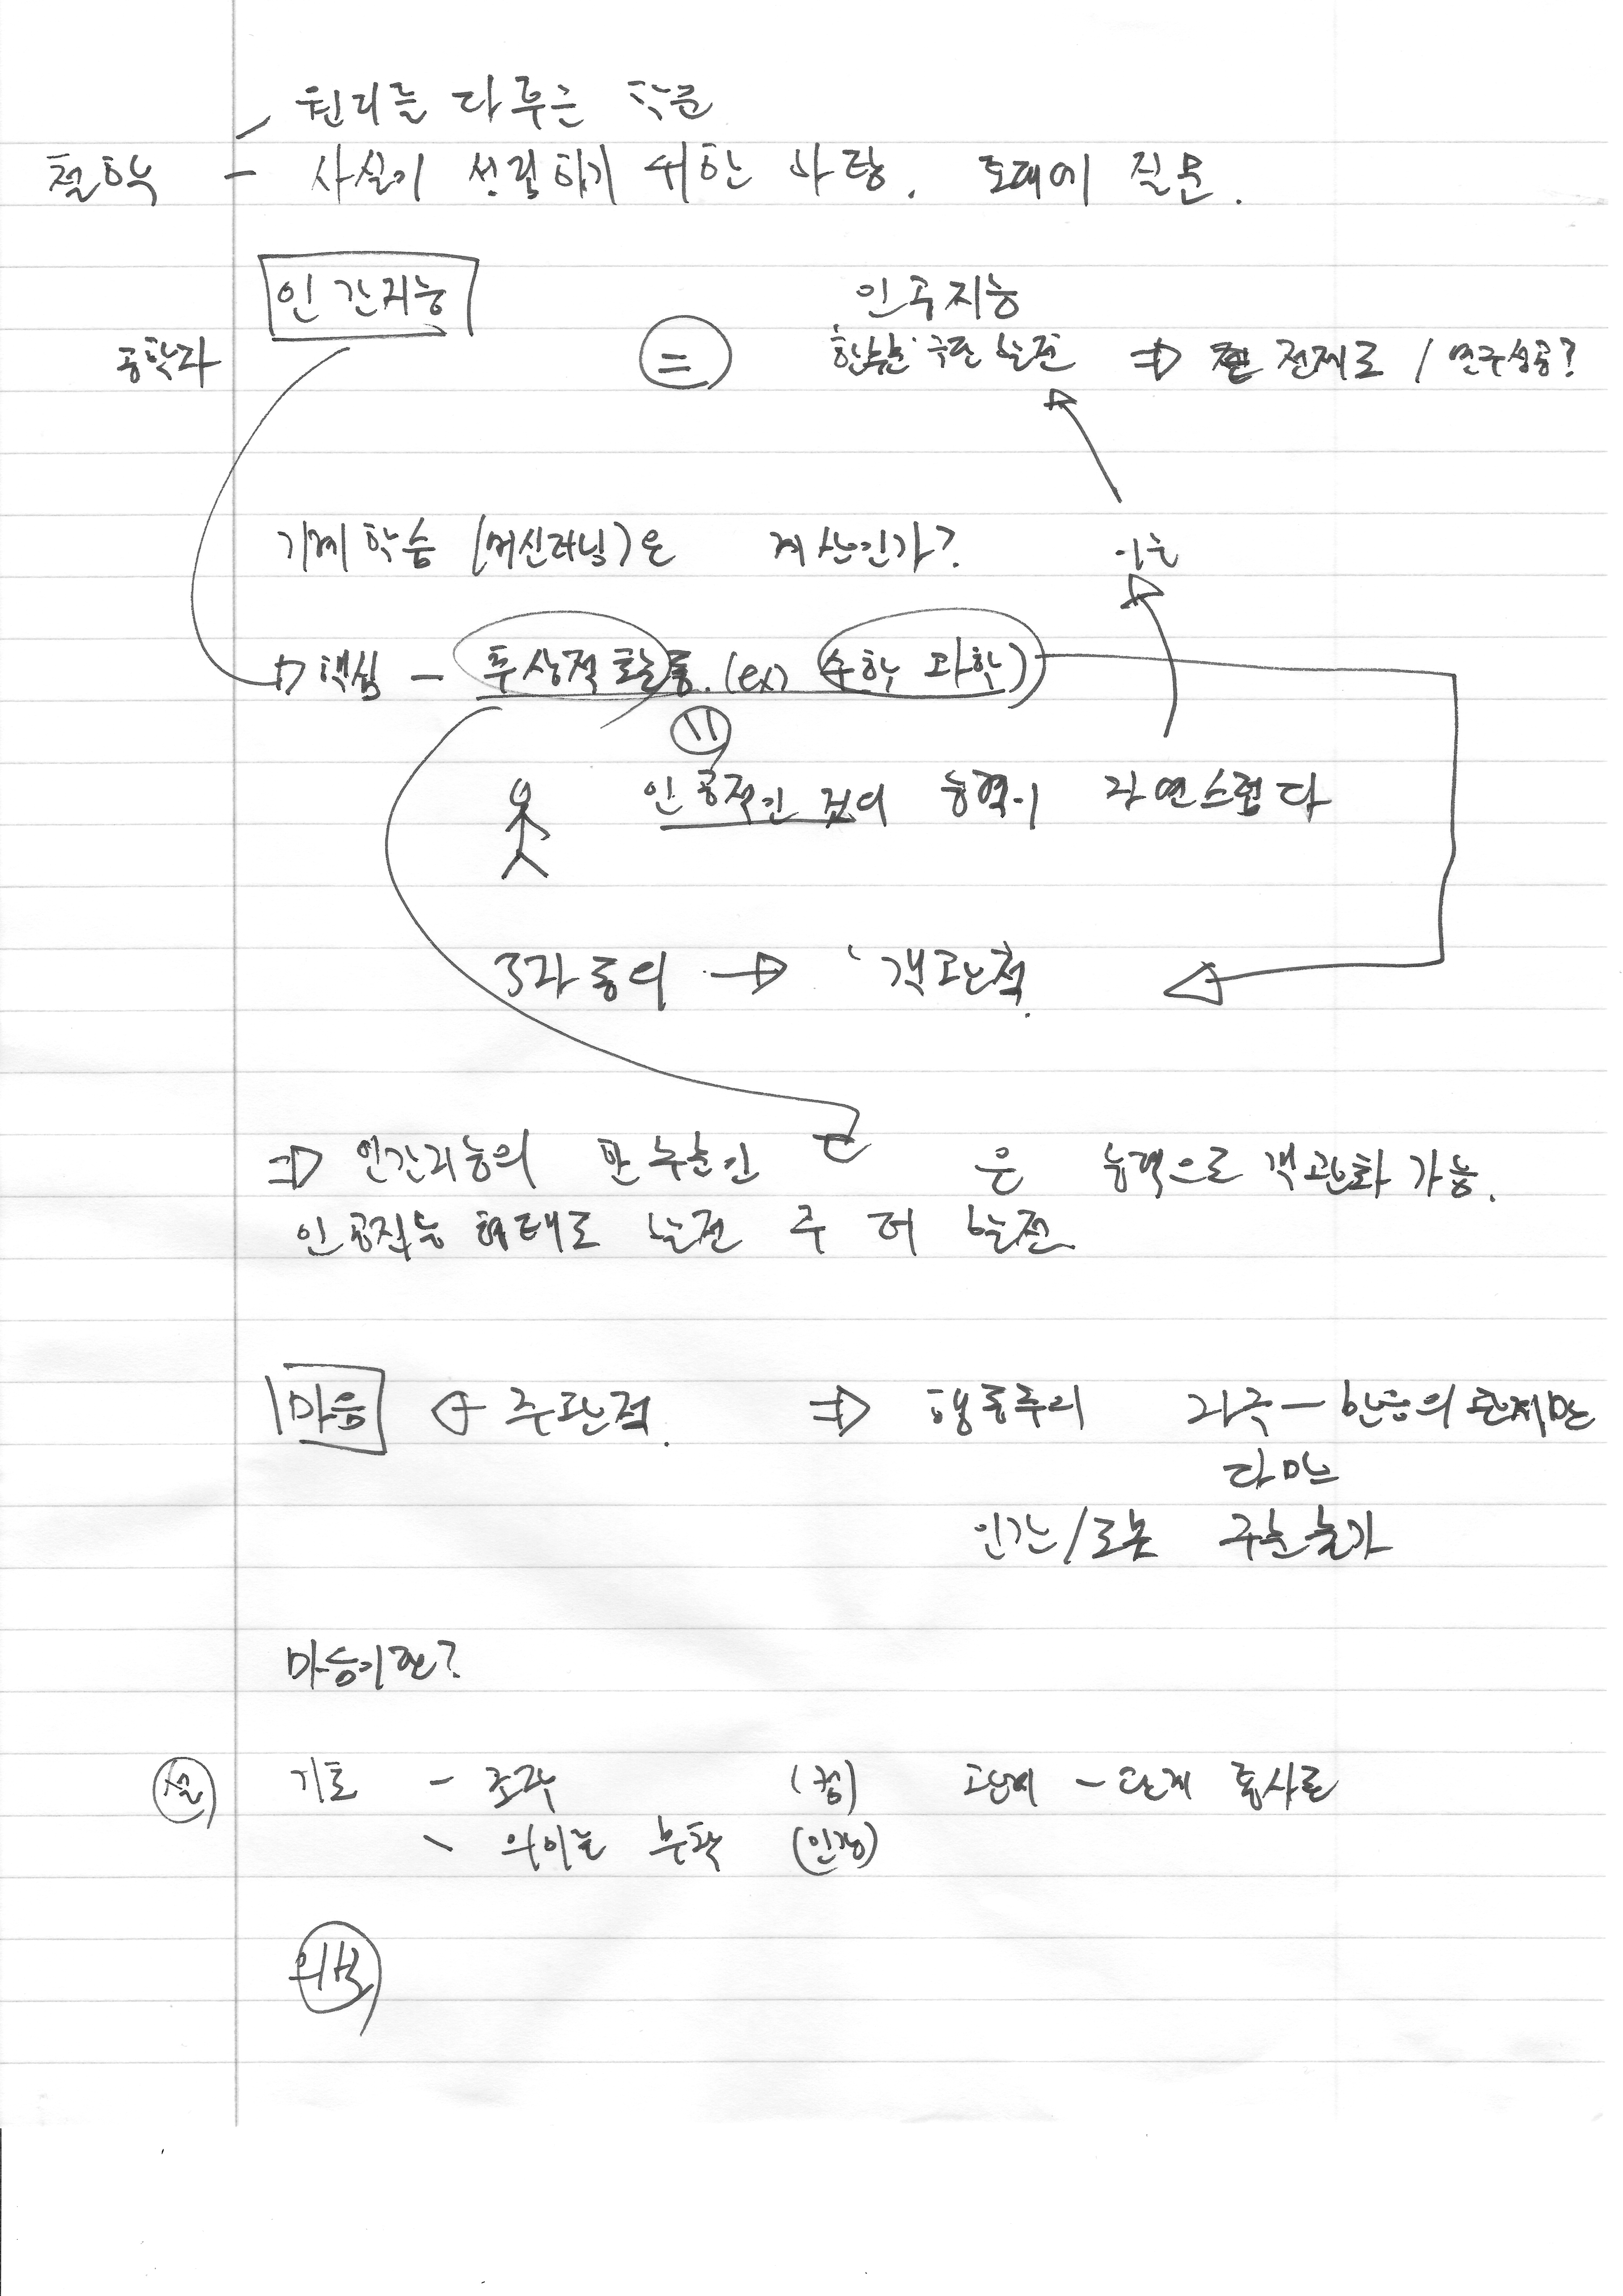 원리를 다루는 학문
철학 - 사실이 성립하기 위한 바탕. 토대에 질문.
인간지능
인공지능
공학자 = 한부분 구현 발전 ⇒ 전제로 / 연구성공?
기계학습 (머신러닝)은 계산인가?
이는
⇒ 핵심 - 추상적 활동. (ex) 수학 과학)
=
인공적인 것의 능력이 자연스럽다
3자 동의 → 객관적.
⇒ 인간지능의 한 부분인 은 능력으로 객관화 가능.
인공지능 형태로 발전 추 더 발전.
마음 ← 주관적. ⇒ 행동주의 자극 - 반응의 관계만
다만
인간/로봇 구분불가
마음이란?
기호 - 조작 (컴) - 단계
- 의미는 부착 (인간)